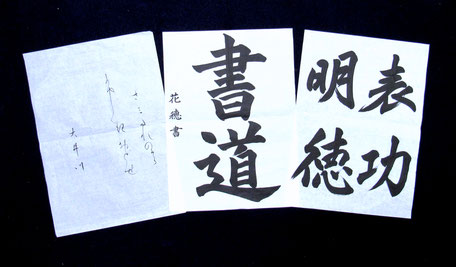 表功
明徳
書道
花穂書
大井川